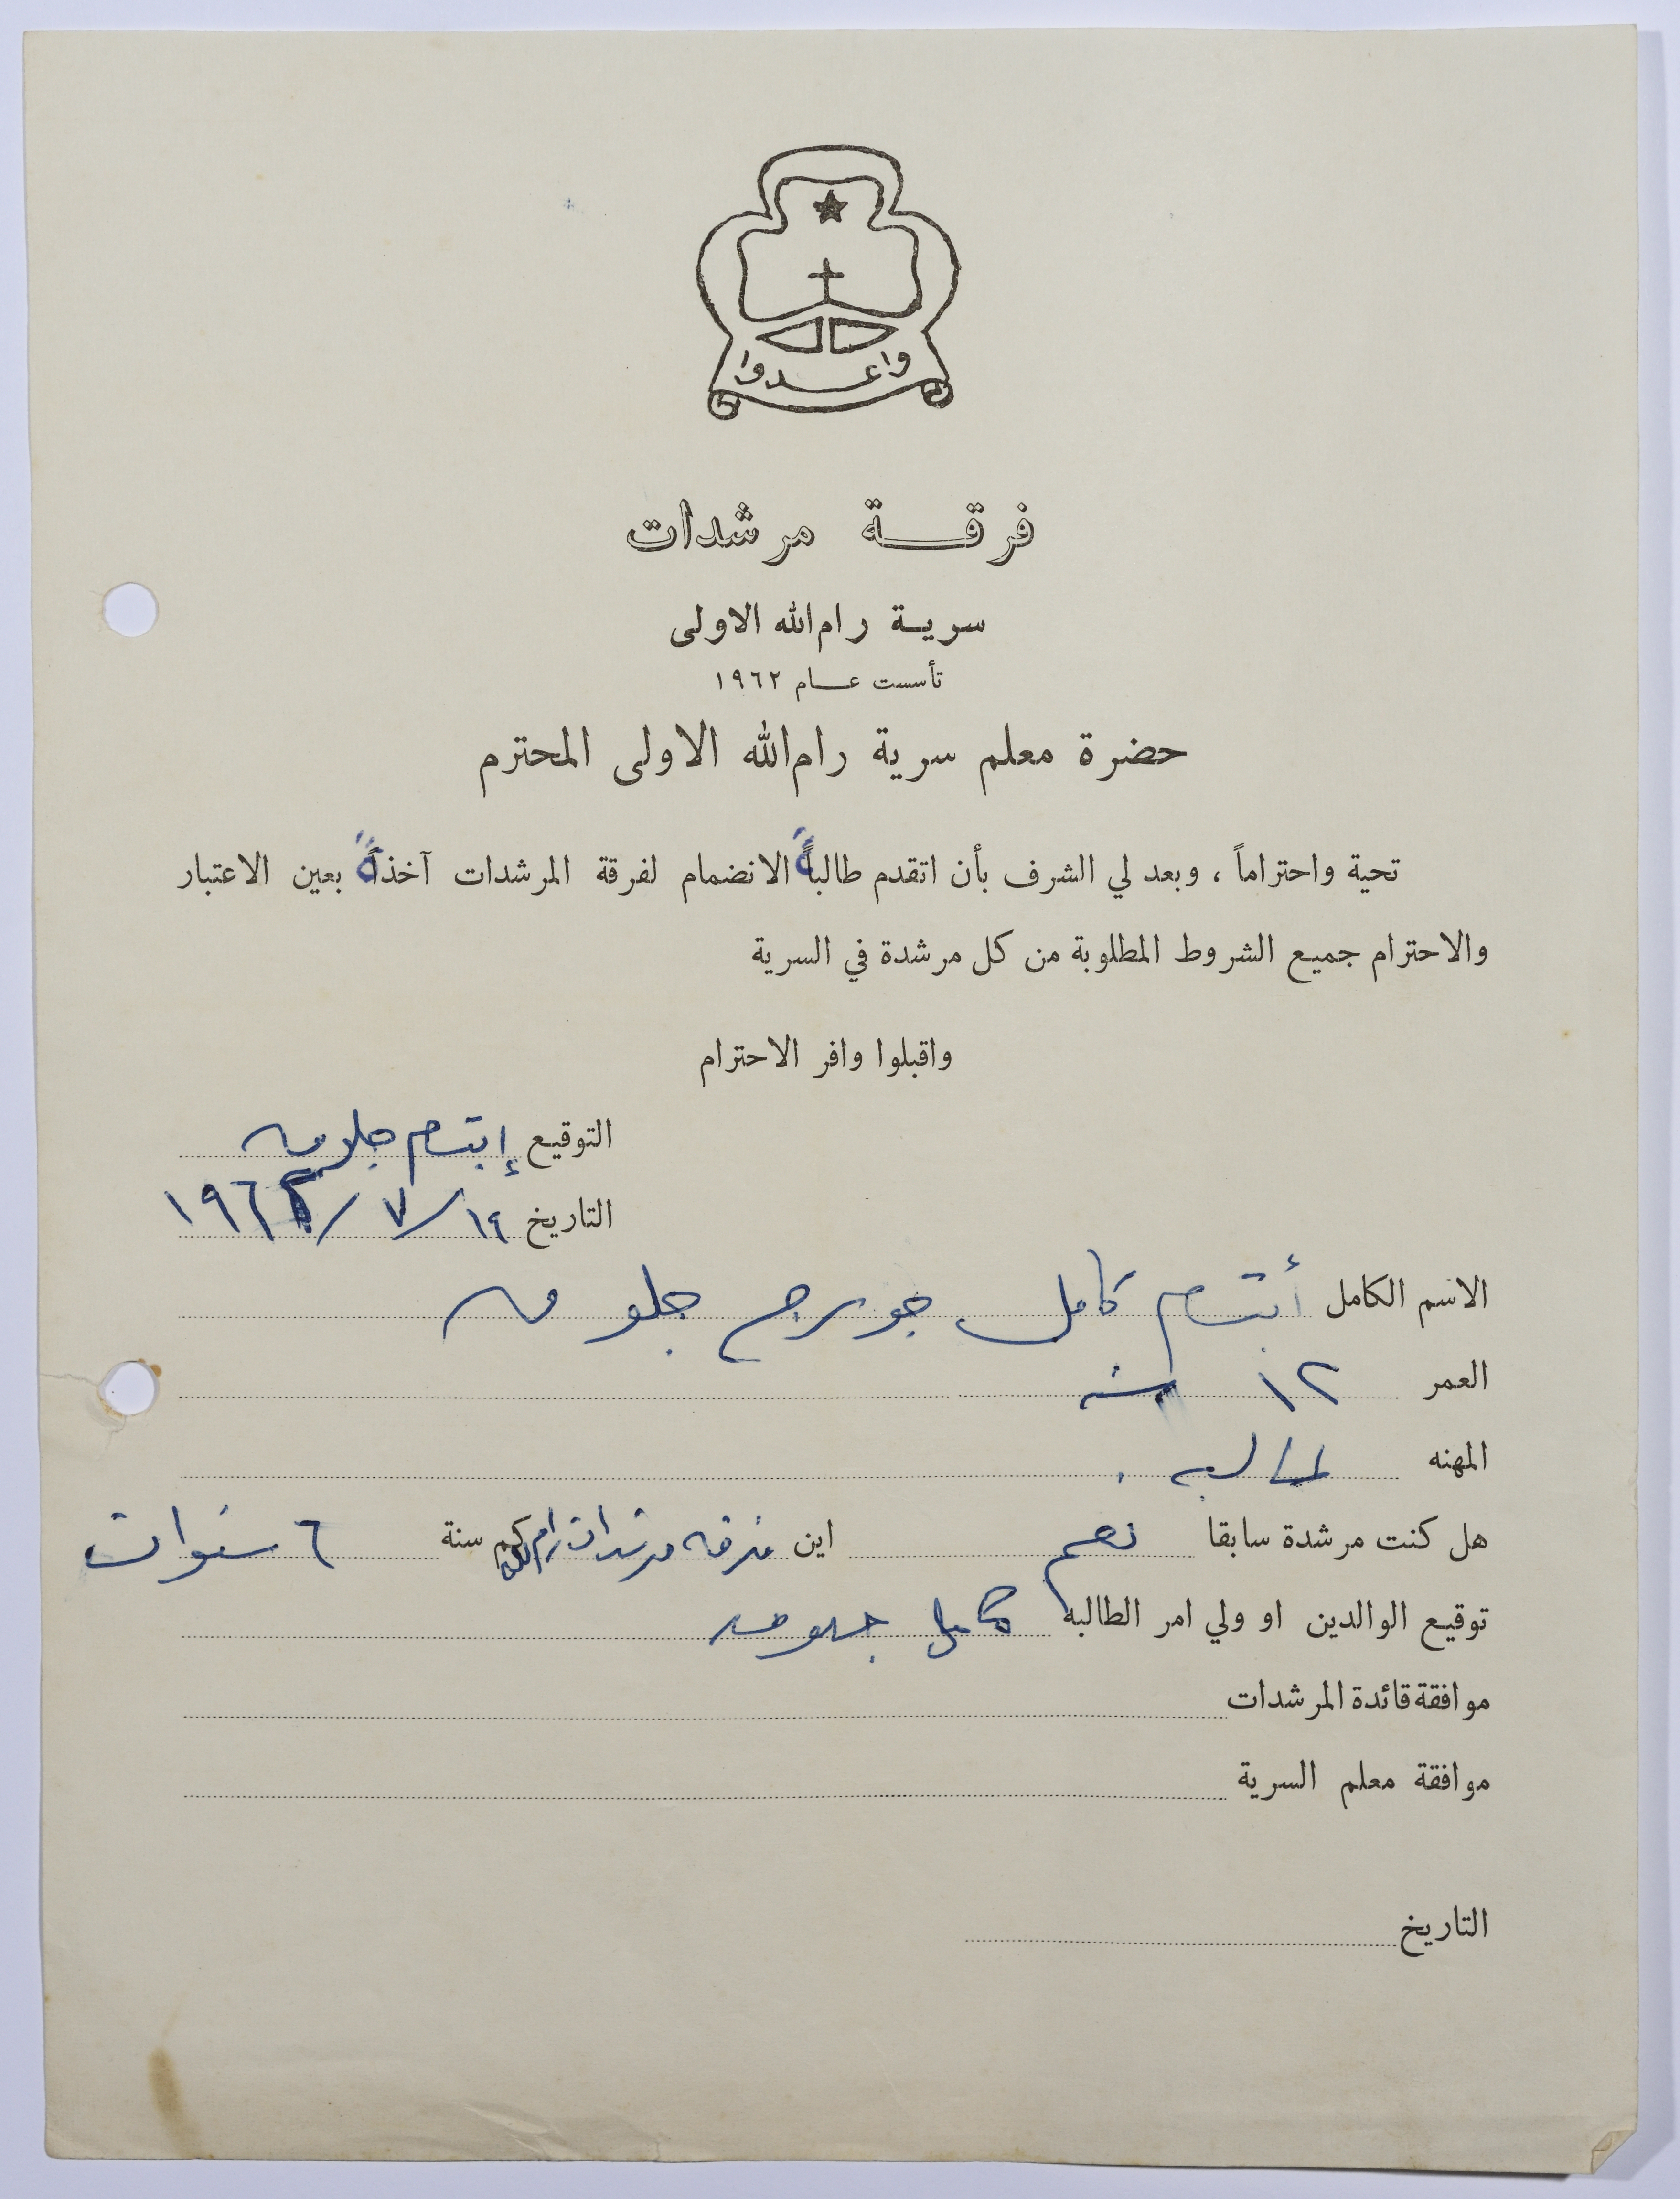 واعدوا
فرقة مرشدات
سرية رام الله الاولى
تأسست عام ١٩٦٢
حضرة معلم سرية رام الله الاولى المحترم
تحية واحتراماً ، وبعد لي الشرف بأن اتقدم طالبةً الانضمام لفرقة المرشدات آخذةً بعين الاعتبار
والاحترام جميع الشروط المطلوبة من كل مرشدة في السرية
واقبلوا وافر الاحترام
التوقيع إبتسام جلوقه
التاريخ ١٩ / ٧ /
الاسم الكامل أبتسام كامل جورج جلوقه
العمر ١٢ سنه
المهنه طالبه .
هل كنت مرشدة سابقا نعم اين فرقه مرشدات رام الله كم سنة ٦ سنوات
توقيع الوالدين او ولي امر الطالبه كامل جلوقه
موافقة قائدة المرشدات
موافقة معلم السرية
التاريخ